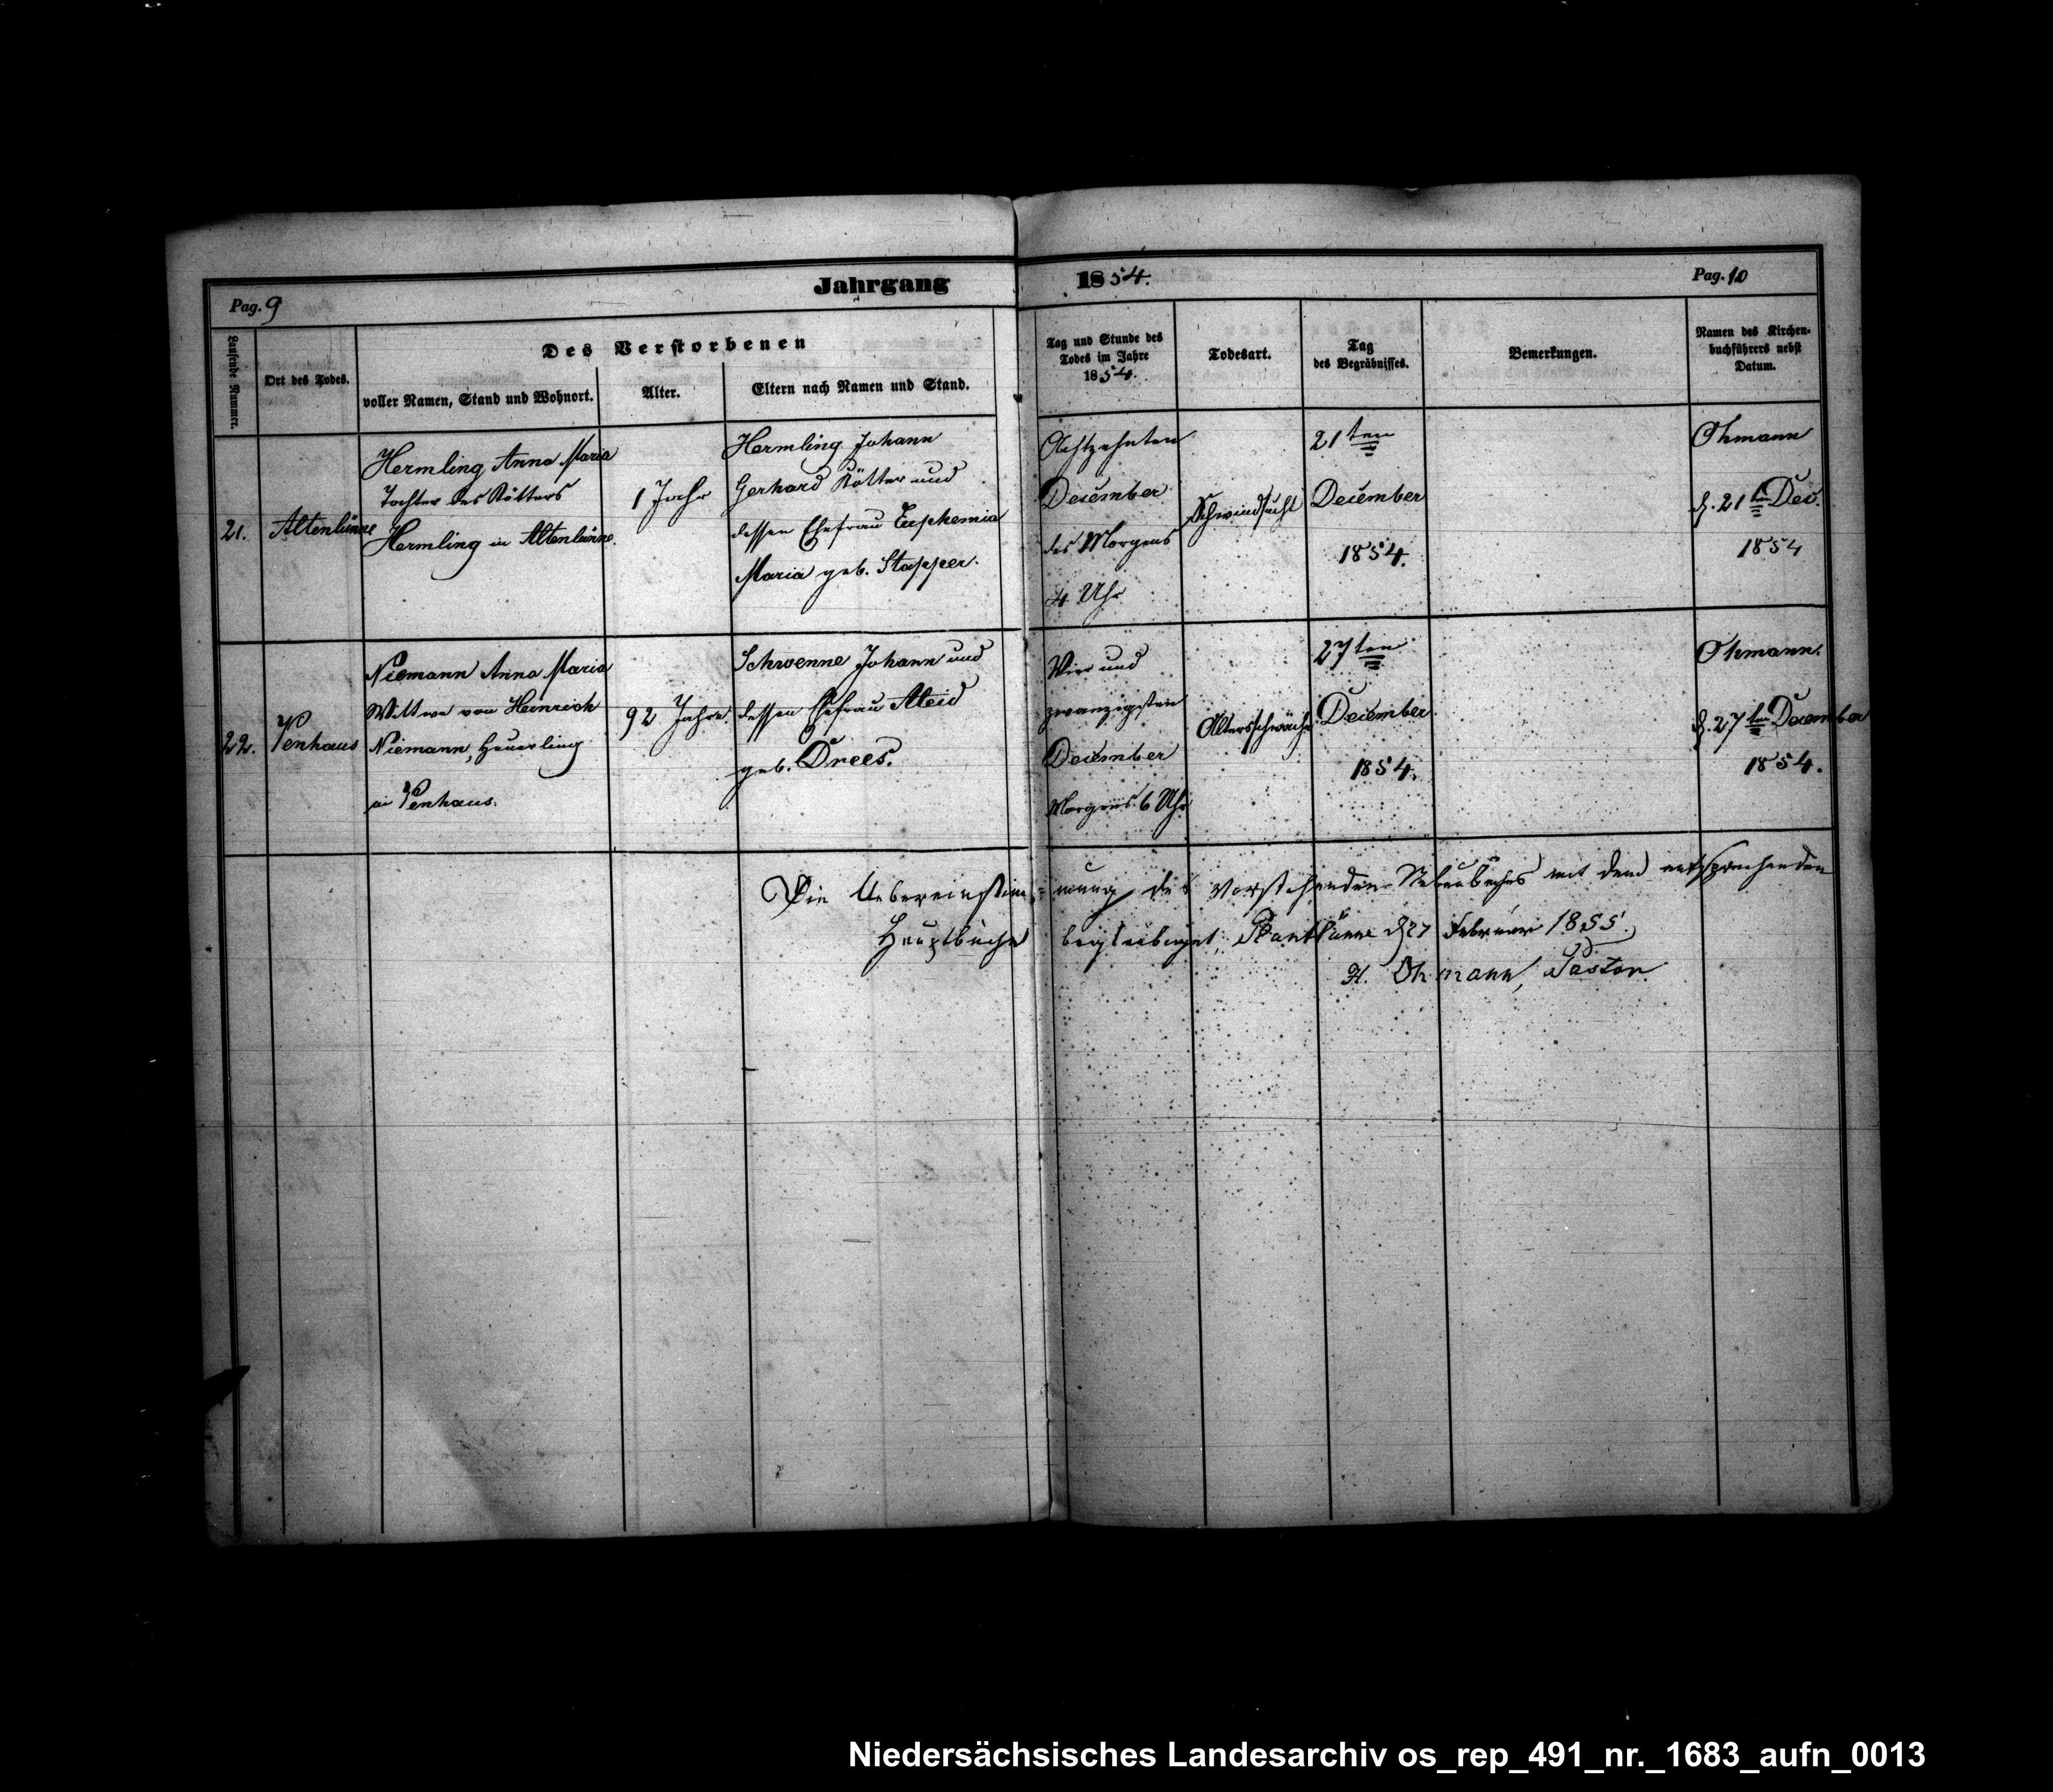 Jahrgang 1854.
Pag. 9
Pag. 10
Laufende Nummer.
Ort des Todes.
Des Verstorbenen
voller Namen, Stand und Wohnort.
Alter.
Eltern nach Namen und Stand.
Tag und Stunde des
Todes im Jahre
1854.
Todesart.
Tag
des Begräbnisses.
Bemerkungen.
Namen des Kirchen-
buchführers nebst
Datum.
21.
Altenlünne
Hermling Anna Maria
Tochter des Kötters
Hermling in Altenlünne.
1 Jahr
Hermling Johann
Gerhard Kötter und
dessen Ehefrau Euphemia
Maria geb. Stapper.
Achtzehnten
December
des Morgens
4 Uhr
Schwindsucht
21ten
December
1854.
Ohmann
d. 21ten Dec.
1854
22.
Venhaus
Niemann Anna Maria
Wittwe von Heinrich
Niemann, Heuerling
in Venhaus.
92 Jahre.
Schwenne Johann und
dessen Ehefrau Aleid
geb. Drees.
Vier und
zwanzigsten
December
Morgens 6 Uhr
Altersschwäche
27ten
December
1854.
Ohmann.
d. 27ten December
1854.
Die Uebereinstim=mung des vorstehenden Nebenbuches mit dem entsprechenden
Hauptbuche beglaubiget, Plantlünne d 27 Februar 1855.
H. Ohmann, Pastor
Niedersächsisches Landesarchiv os_rep_491_nr._1683_aufn_0013